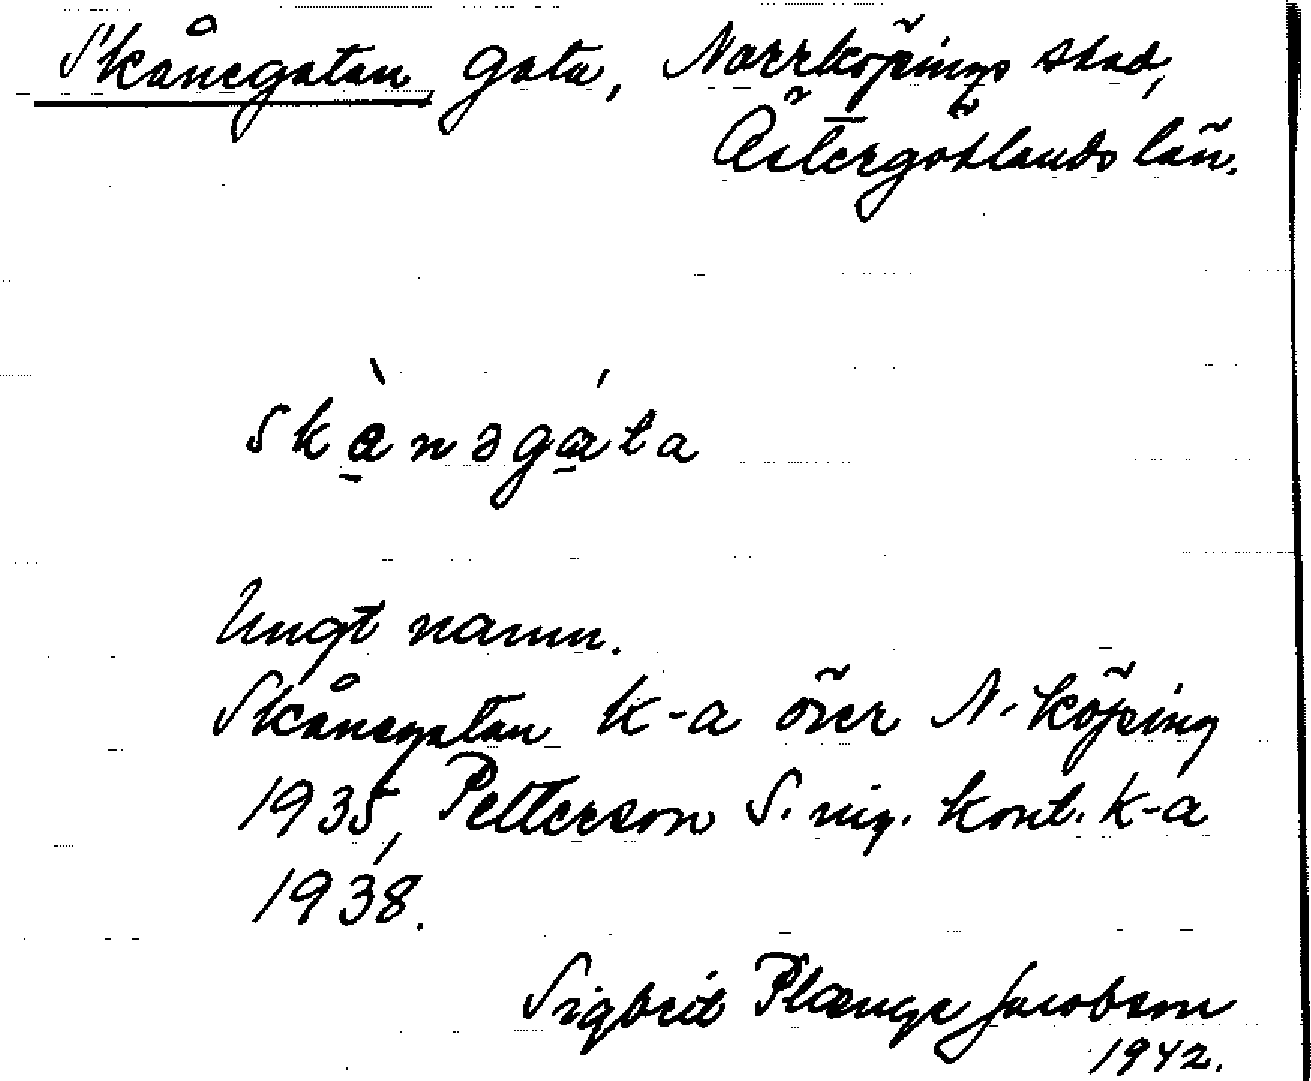 Skånegatan gata, Norrköpings stad,
Östergötlands län.
Skànəgáta
Ungt namn.
Skånegatan K-a över N-köping
1935, Petterson S. ing. kont. K-a
1938.
Sigbrit Plænge Jacobson
1942.